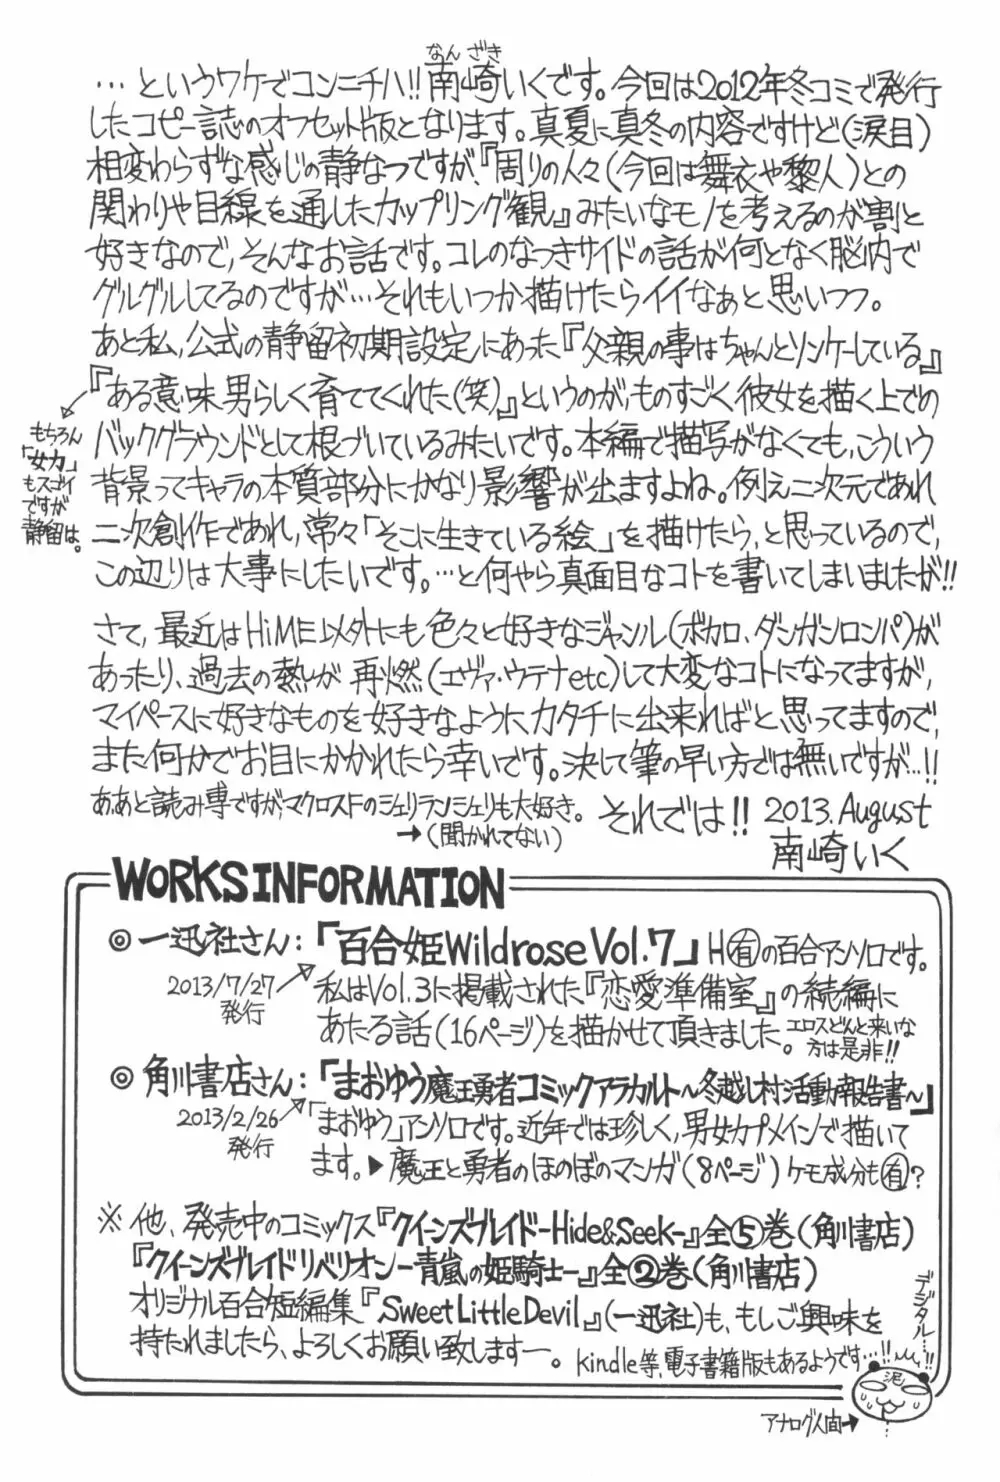 なん ざき
…というワケでコンニチハ!!南崎いくです。今回は2012年冬コミで発行
したコピー誌のオフセット版となります。真夏に真冬の内容ですけど(涙目)
相変わらずな感じの静なつですが、『周りの人々(今回は舞衣や黎人)との
関わりや目線を通したカップリング観』みたいなモノを考えるのが割と
好きなので、そんなお話です。コレのなつきサイドの話が何となく脳内で
グルグルしてるのですが…それもいつか描けたらイイなぁと思いつつ。
あと私、公式の静留初期設定にあった『父親の事はちゃんとソンケーしている』
『ある意味男らしく育ててくれた(笑)』というのが、ものすごく彼女を描く上での
バックグラウンドとして根づいているみたいです。本編で描写がなくても、こういう
背景ってキャラの本質部分にかなり影響が出ますよね。例え二次元であれ
二次創作であれ、常々「そこに生きている絵」を描けたら、と思っているので、
この辺りは大事にしたいです。…と何やら真面目なコトを書いてしまいましたが!!
もちろん
「女力」
もスゴイ
ですが
静留は。
さて、最近はHiME以外にも色々と好きなジャンル(ボカロ、ダンガンロンパ)が
あったり、過去の熱が再燃(エヴァ・ウテナetc)して大変なコトになってますが、
マイペースに好きなものを好きなようにカタチに出来ればと思ってますので、
また何かでお目にかかれたら幸いです。決して筆の早い方では無いですが…!!
ああと読み専ですがマクロスFのシェリランシェリも大好き。
→(聞かれてない)
それでは!! 2013.August
南崎いく
WORKS INFORMATION
◎一迅社さん:「百合姫Wildrose Vol.7」H㊒の百合アンソロです。
2013/7/27
発行
私はVol.3に掲載された『恋愛準備室』の続編に
あたる話(16ページ)を描かせて頂きました。エロスどんと来いな
方は是非!!
◎角川書店さん:「まおゆう魔王勇者コミックアラカルト~冬越し村活動報告書~」
2013/2/26
発行
「まおゆう」アンソロです。近年では珍しく、男女カプメインで描いて
ます。▶魔王と勇者のほのぼのマンガ(8ページ)ケモ成分も㊒?
※他、発売中のコミックス『クイーンズブレイド-Hide&Seek-』全⑤巻(角川書店)
『クイーンズブレイドリベリオン-青嵐の姫騎士-』全②巻(角川書店)
オリジナル百合短編集『Sweet Little Devil』(一迅社)も、もしご興味を
持たれましたら、よろしくお願い致しますー。
kindle等、電子書籍版もあるようです…!!
デジタル…!!
泥
アナログ人間→